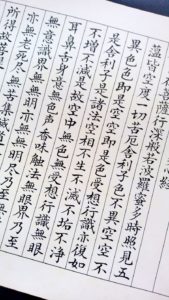 心経
菩薩行深般若波羅蜜多時照見五
蘊皆空度一切苦厄舎利子色不異空空不
異色色即是空空即是色受想行識亦復如
是舎利子是諸法空相不生不滅不垢不浄
不増不減是故空中無色無受想行識無眼
耳鼻舌身意無色声香味触法無眼界乃至
無意識界無無明亦無無明尽乃至
亦無老死尽無苦集滅道
所得故菩提